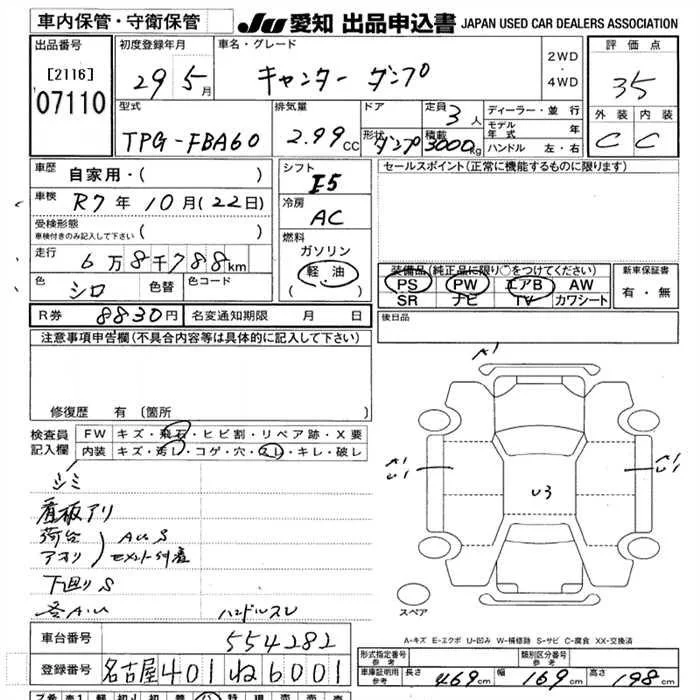 車内保管・守衛保管
JU 愛知 出品申込書 JAPAN USED CAR DEALERS ASSOCIATION
出品番号
[2116]
07110
初度登録年月
29 5月
車名・グレード
キャンター ダンプ
2WD
・
4WD
評価点
35
外装 内装
C C
型式
TPG-FBA60
排気量
2.99cc
ドア
形状 ダンプ
定員 3人
積載 3000kg
ディーラー・並行
モデル年式 年
ハンドル 左・右
車歴
自家用・( )
車検 R7年10月(22日)
受検形態
車検付きのみ記入して下さい ( )
走行
6万8千788km
色 シロ 色替 色コード
シフト
I5
冷房
AC
燃料
ガソリン
軽油
( )
セールスポイント(正常に機能するものに限ります)
装備品(純正品に限り○をつけてください)
PS PW エアB AW
SR ナビ TV カワシート
新車保証書
有・無
R券 8830円 名変通知期限 月 日
後日品
注意事項申告欄(不具合内容等は具体的に記入して下さい)
修復歴 有 (箇所 )
検査員
記入欄
FW キズ・飛石・ヒビ割・リペア跡・X要
内装 キズ・汚レ・コゲ・穴・スレ・キレ・破レ
シミ
看板アリ
荷台
アオリ
AUS
セメント付着
下回りS
各A.U
ハンドルスレ
A1
A1
U1
A1
U1
U3
スペア
A-キズ E-エクボ U-凹み W-補修跡 S-サビ C-腐食 XX-交換済
車台番号 554282
登録番号 名古屋401ね6001
形式指定番号
参考
類別区分番号
参考
車庫証明用
参考
長さ 469cm 幅 169cm 高さ 198cm